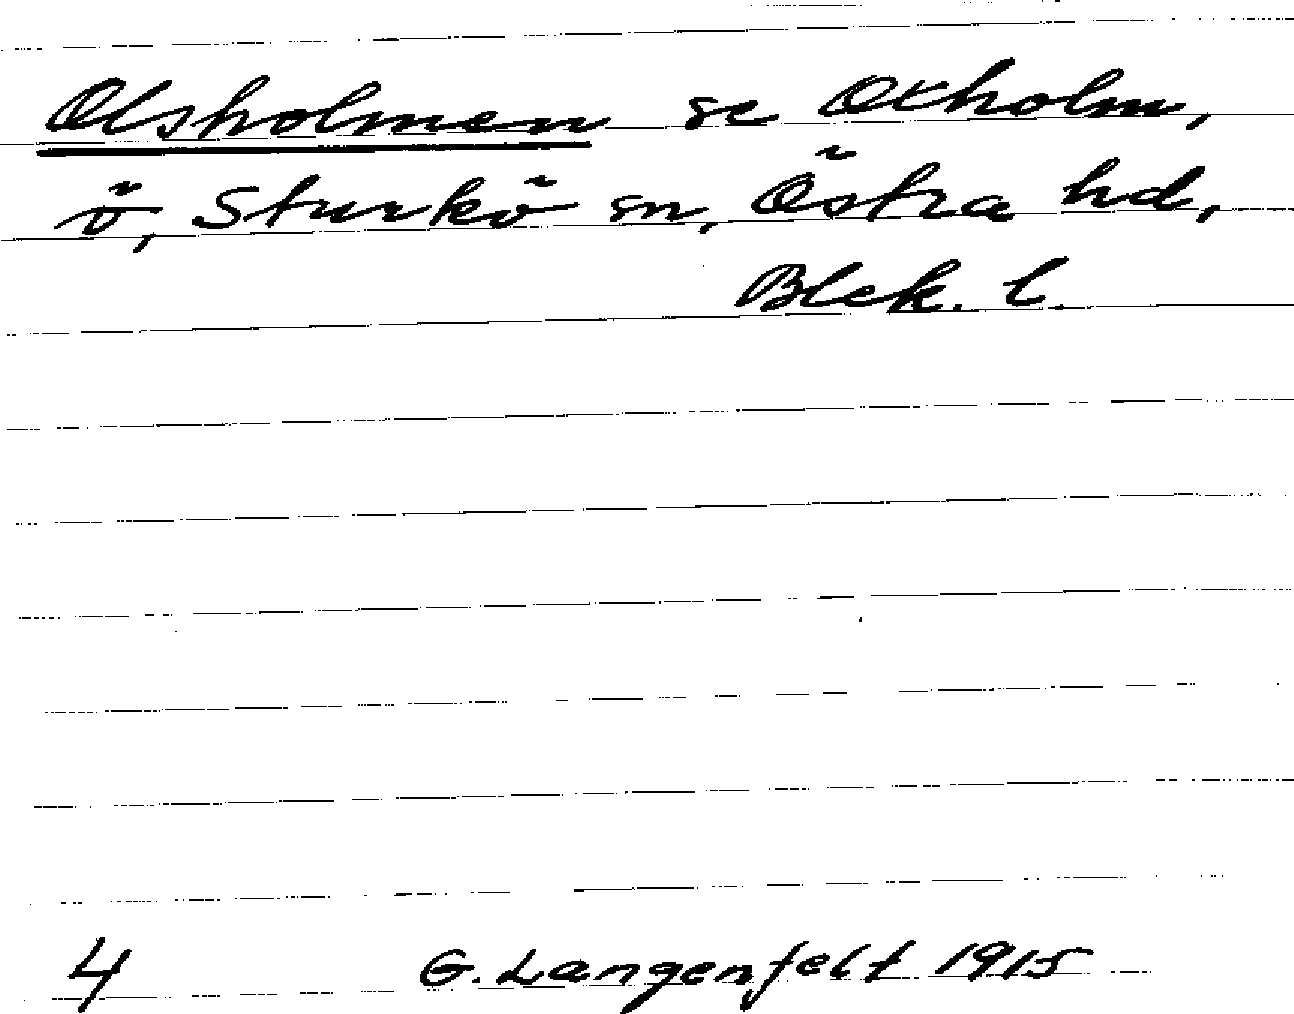 Olsholmen se Oxholm,
ö, Sturkö sn, Östra hd,
Blek. l.
4 G. Langenfelt 1915